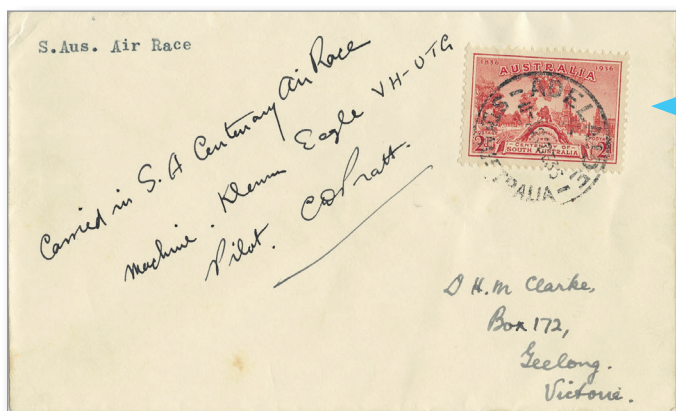 S.Aus. Air Race
Carried in S.A Centenary Air Race
machine. Klemm Eagle VH-UTG
Pilot. C D Pratt.
1836 1936
AUSTRALIA
2D 2D
CENTENARY OF
SOUTH AUSTRALIA
ADELAIDE
AUSTRALIA
D H.M Clarke,
Box 172,
Geelong.
Victoria.